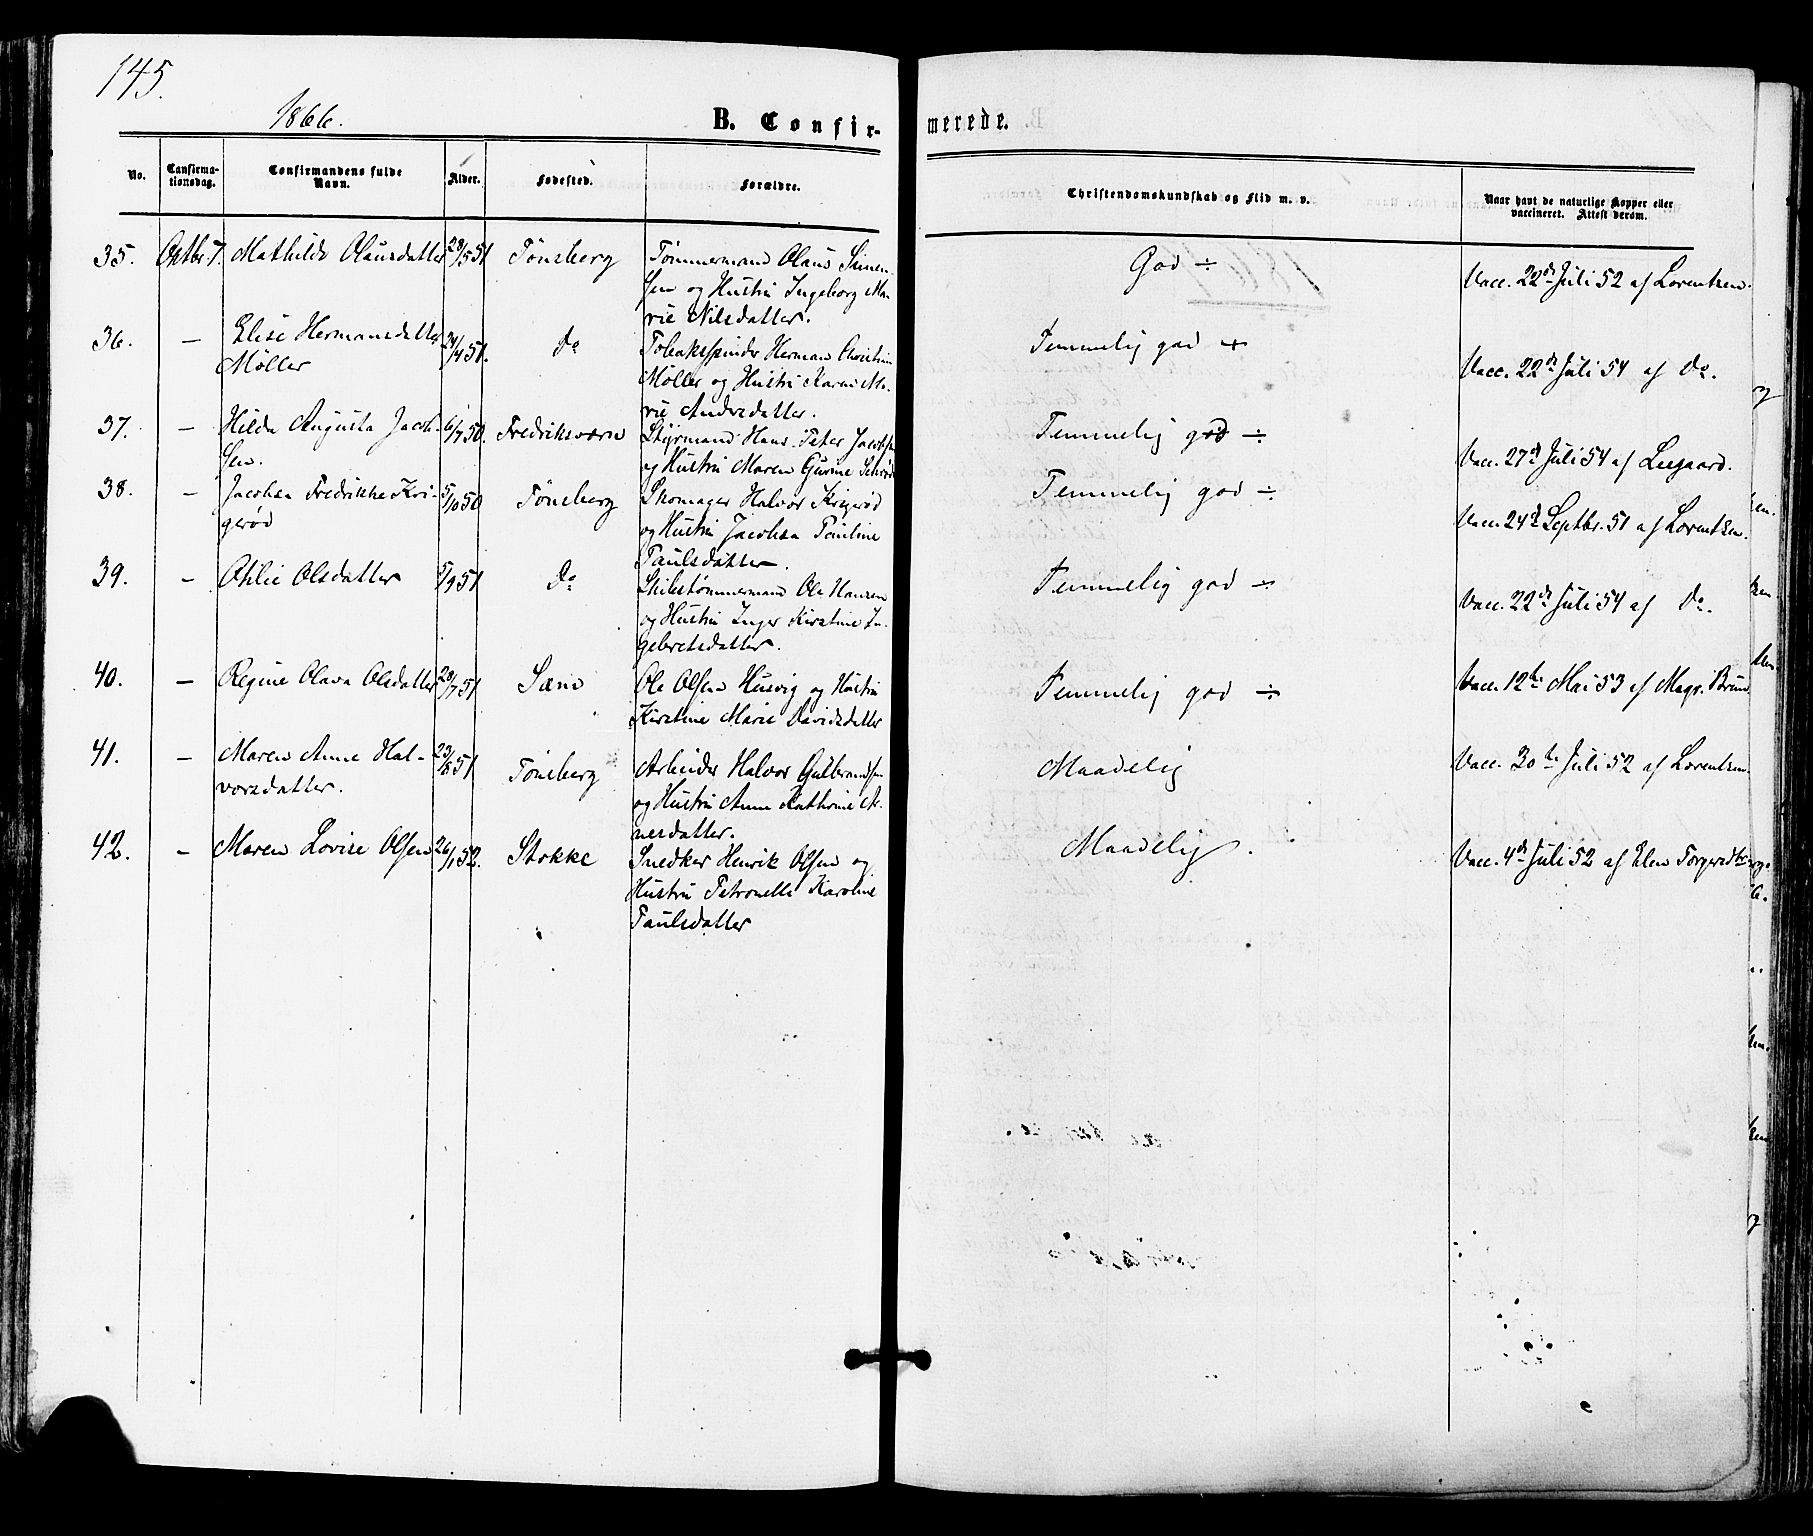 145.
1866.
B. Confir-
merede.
No.
Confirma-
tionsdag.
Confirmandens fulde
Navn.
Alder.
Fødested.
Forældre.
Christendomskundskab og Flid m. v.
Naar havt de naturlige Kopper eller
vaccineret. Attest derom.
35. Octbr. 7. Mathilde Olausdatter 28/5 51 Tönsberg Tömmermand Olaus Simen-
sen og Hustru Ingeborg Ma-
rie Nilsdatter.
God ÷
Vacc. 22de Juli 52 af Lorentzen.
36. – Elise Hermansdatter 24/4 51. Do Tobakspinder Herman Christian
Møller
Møller og Hustru Karen Ma-
rie Andrsdatter.
Temmelig god +
Vacc. 22de Juli 54 af Do.
37. – Hilda Augusta Jacob- 6/7 50. Fredriksværn Styrmand Hans Peter Jacobsen
sen.
og Hustru Maren Gurine
Temmelig god ÷
Vacc. 27de Juli 54 af
38. – Jacobsa Fredrikke Kri- 5/10 50 Tönsberg Skomager Halvor Krigerød
gerød
og Hustru Jacobsa Pauline
Paulsdatter.
Temmelig god ÷
Vacc. 24de Septbr. 51 af Lorentzen.
39. – Otilie Olsdatter 5/9 51 Do Skibstømmermand Ole Hansen
og Hustru Inger Kirstine In-
gebretsdatter.
Temmelig god ÷
Vacc. 22de Juli 54 af Do.
40. – Regine Olava Olsdatter 28/7 51 Sæm Ole Olsen Husvig og Hustru
Kirstine Marie Davidsdatter
Temmelig god ÷
Vacc. 12te Mai 53 af Magr. Bruun
41. – Maren Anne Hal- 23/8 51 Tönsberg Arbeider Halvor Gulbrandsen
vorsdatter.
og Hustru Anne Kathrine A-
nersdatter.
Maadelig
Vacc. 30te Juli 52 af Lorentzen.
42. – Maren Lovise Olsen 26/1 52. Stokke Snedker Henrik Olsen og
Hustru Petronelle Karoline
Paulsdatter
Maadelig.
Vacc. 4de Juli 52 af Elen